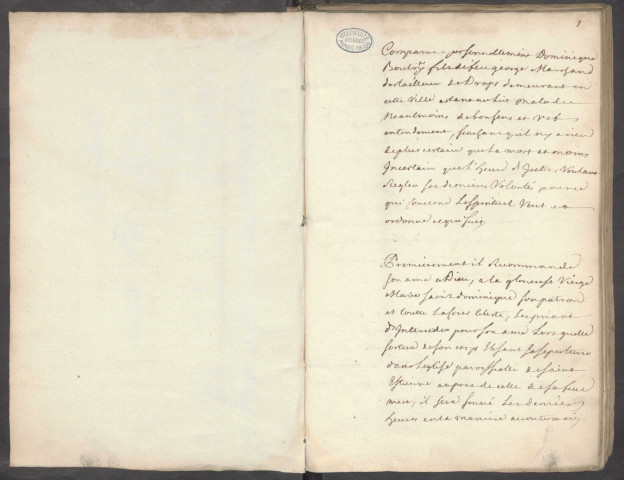 1
Comparu personnellement Dominique
Boutry fils de feu george Marchand
detailleur de Draps demeurant en
cette Ville estant au lict malade
Neantmoins de bon sens et
entendement, sachant qu'il n'y a rien
de plus certain que la mort et moins
Incertain que l'heure d'Icelle, Voulant
Regler ses dernieres Volontés pour ce
qui concerne Lespirituel Veut et
ordonne ce qui suit
Premierement il Recommande
son ame a Dieu, a la glorieuse Vierge
Marie saint dominique son patron
et toutte la cour Celeste, les priant
d'Interceder pour son ame Lors quelle
sortira de son corps Elisant sa sepulture
dans l'eglise paroissialle de saint
Estienne aupres de celle de sa feue
mere, il sera sonné les dernieres
heures en la maniere accoutumée